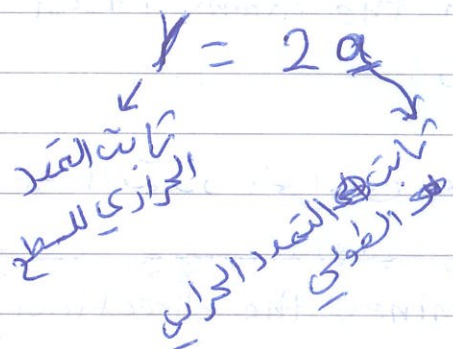 γ = 2a
ثابت التمدد
الحراري للسطح
ثابت التمدد الحراري
الطولي